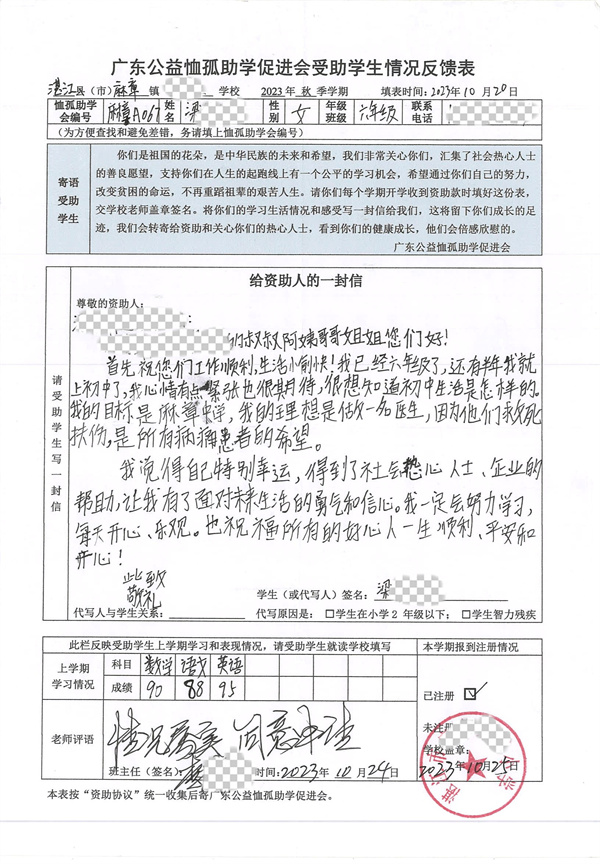 广东公益恤孤助学促进会受助学生情况反馈表
湛江县（市）麻章镇 学校 2023年秋季学期 填表时间：2023年10月20日
恤孤助学会编号 麻章A067 姓名 梁 性别 女 年级班级 六年级 联系电话
（为方便查找和避免差错，务请填上恤孤助学会编号）
寄语受助学生
你们是祖国的花朵，是中华民族的未来和希望，我们非常关心你们，汇集了社会热心人士
的善良愿望，支持你们在人生的起跑线上有一个公平的学习机会，希望通过你们自己的努力，
改变贫困的命运，不再重蹈祖辈的艰苦人生。请你们每个学期开学收到资助款时填好这份表，
交学校老师盖章签名。将你们的学习生活情况和感受写一封信给我们，这将留下你们成长的足
迹，我们会转寄给资助和关心你们的热心人士，看到你们的健康成长，他们会倍感欣慰的。
广东公益恤孤助学促进会
请受助学生写一封信
给资助人的一封信
尊敬的资助人：
的叔叔阿姨哥哥姐姐您们好！
首先祝您们工作顺利，生活愉快！我已经六年级了，还有半年我就
上初中了，我心情有点紧张也很期待，很想知道初中生活是怎样的。
我的目标是麻章中学，我的理想是做一名医生，因为他们救死
扶伤，是所有病痛患者的希望。
我觉得自己特别幸运，得到了社会热心人士、企业的
帮助，让我有了面对未来生活的勇气和信心。我一定会努力学习，
每天开心、乐观。也祝福所有的好心人一生顺利、平安和
开心！
此致
敬礼
学生（或代写人）签名：梁
代写人与学生关系： 代写原因是：☐学生在小学2年级以下；☐学生智力残疾
此栏反映受助学生上学期学习和表现情况，请受助学生就读学校填写
本学期报到注册情况
上学期学习情况
科目 数学 语文 英语
成绩 90 88 95
已注册 ☑
老师评语 情况属实 同意申请
未注册
学校盖章：
班主任（签名）： 时间：2023年10月24日
2023年10月25日
本表按“资助协议”统一收集后寄广东公益恤孤助学促进会。